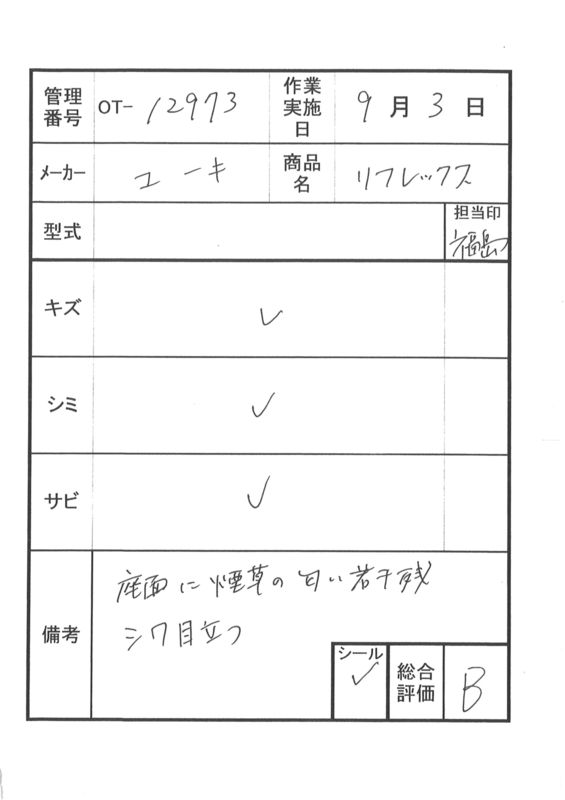 管理番号 OT- 12973 作業実施日 9月3日
メーカー ユーキ 商品名 リフレックス
型式 担当印 福島
キズ ✓
シミ ✓
サビ ✓
備考 座面に煙草の匂い若干残
シワ目立つ
シール ✓ 総合評価 B